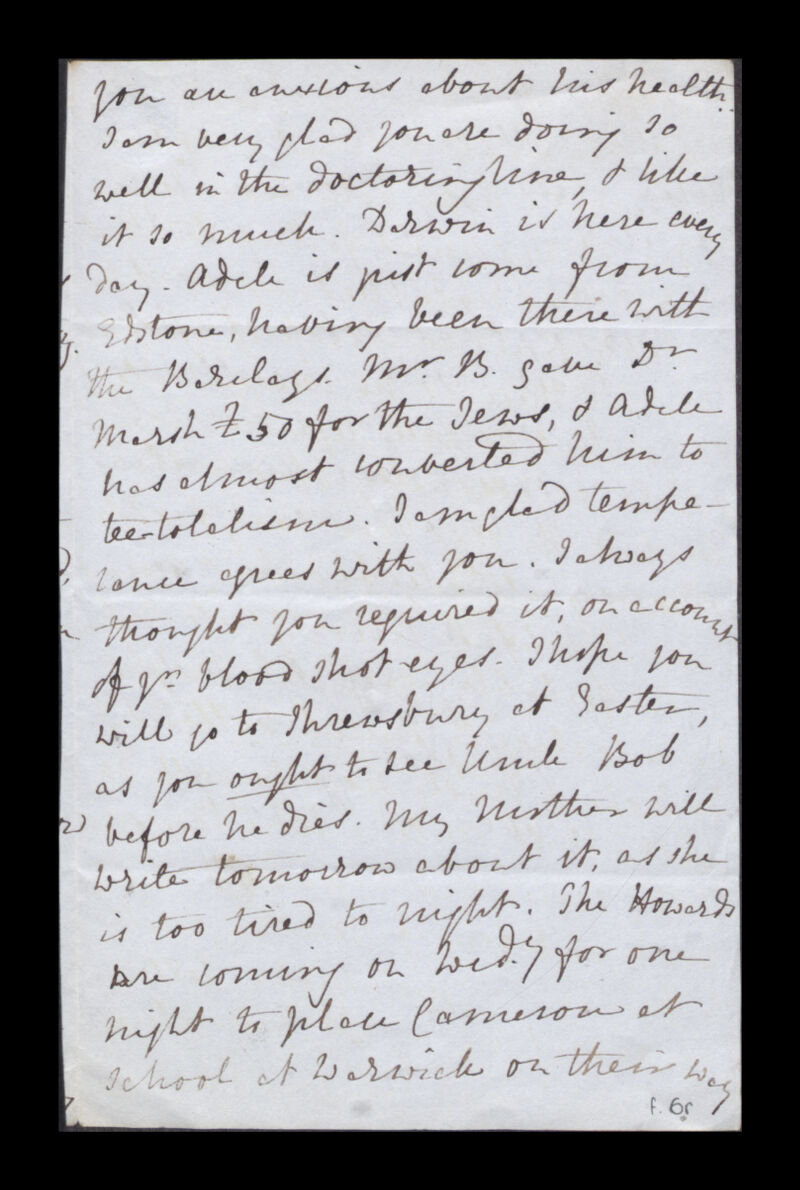 you are anxious about his health.
I am very glad you are doing so
well in the doctoring line, & like
it so much. Darwin is here every
day. Adele is just come from
Edstone, having been there with
the Barclays. Mr. B. gave Dr
Marsh £50 for the Jews, & Adele
has almost converted him to
tee-totalism. I am glad tempe-
rance agrees with you. I always
thought you required it, on account
of yr. blood shot eyes. I hope you
will go to Shrewsbury at Easter,
as you ought to see Uncle Bob
before he dies. My Mother will
write tomorrow about it, as she
is too tired to night. The Howards
are coming on Wed.y for one
night to place Cameron at
school at Warwick on their way
f. 6r